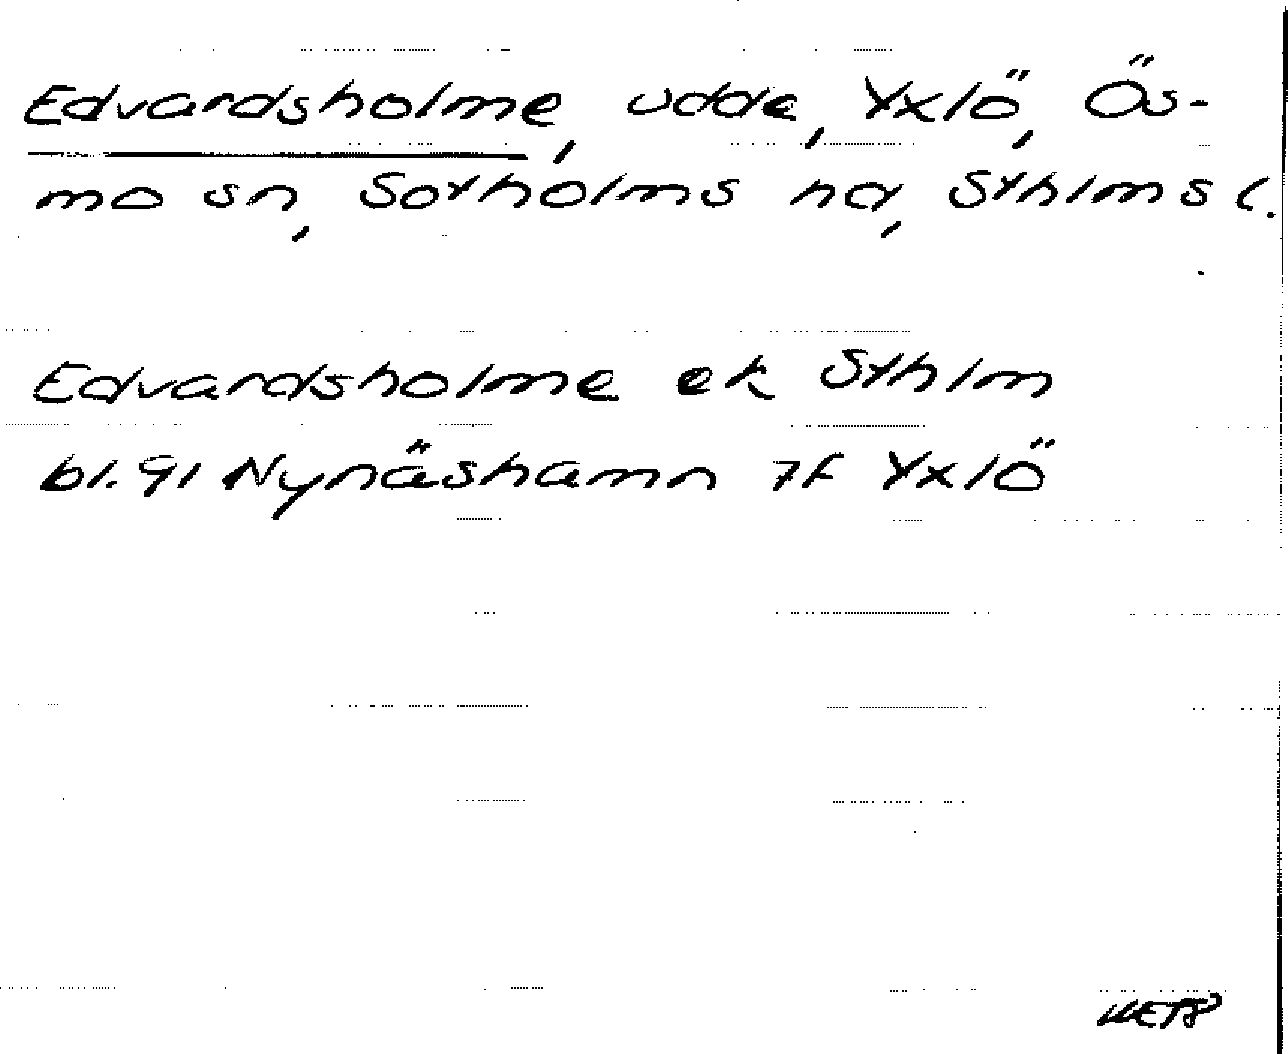 Edvardsholme, udde, Yxlö, Ös-
mo sn, Sotholms hd, Sthlms l.
Edvardsholme ek Sthlm
bl. 91 Nynäshamn 7f Yxlö